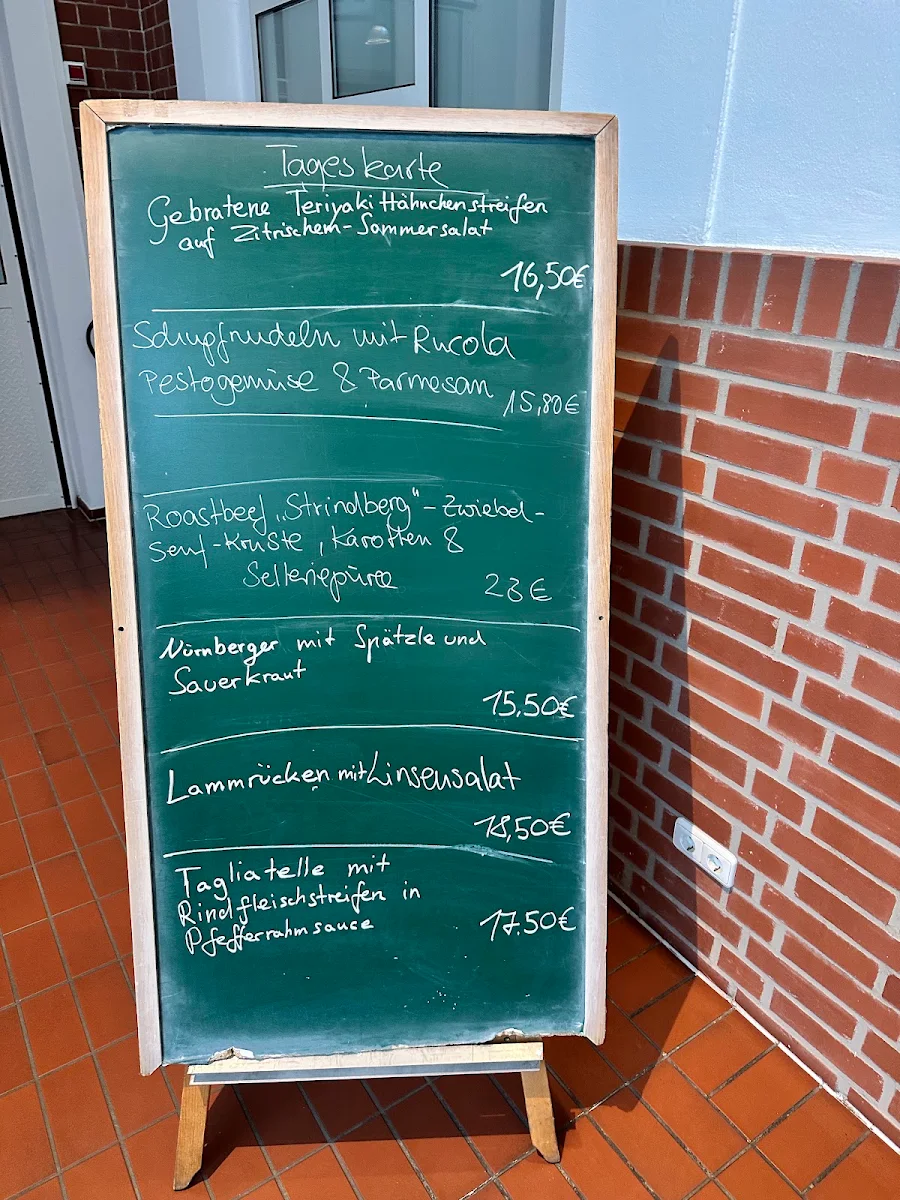 Tageskarte
Gebratene Teriyaki Hähnchenstreifen
auf Zitrischem-Sommersalat
16,50€
Schupfnudeln mit Rucola
Pestogemüse & Parmesan 15,80€
Roastbeef „Strindberg“ - Zwiebel-
Senf-Kruste, Karotten &
Selleriepüree 23€
Nürnberger mit Spätzle und
Sauerkraut
15,50€
Lammrücken mit Linsensalat
18,50€
Tagliatelle mit
Rindfleischstreifen in
Pfefferrahmsauce 17.50€